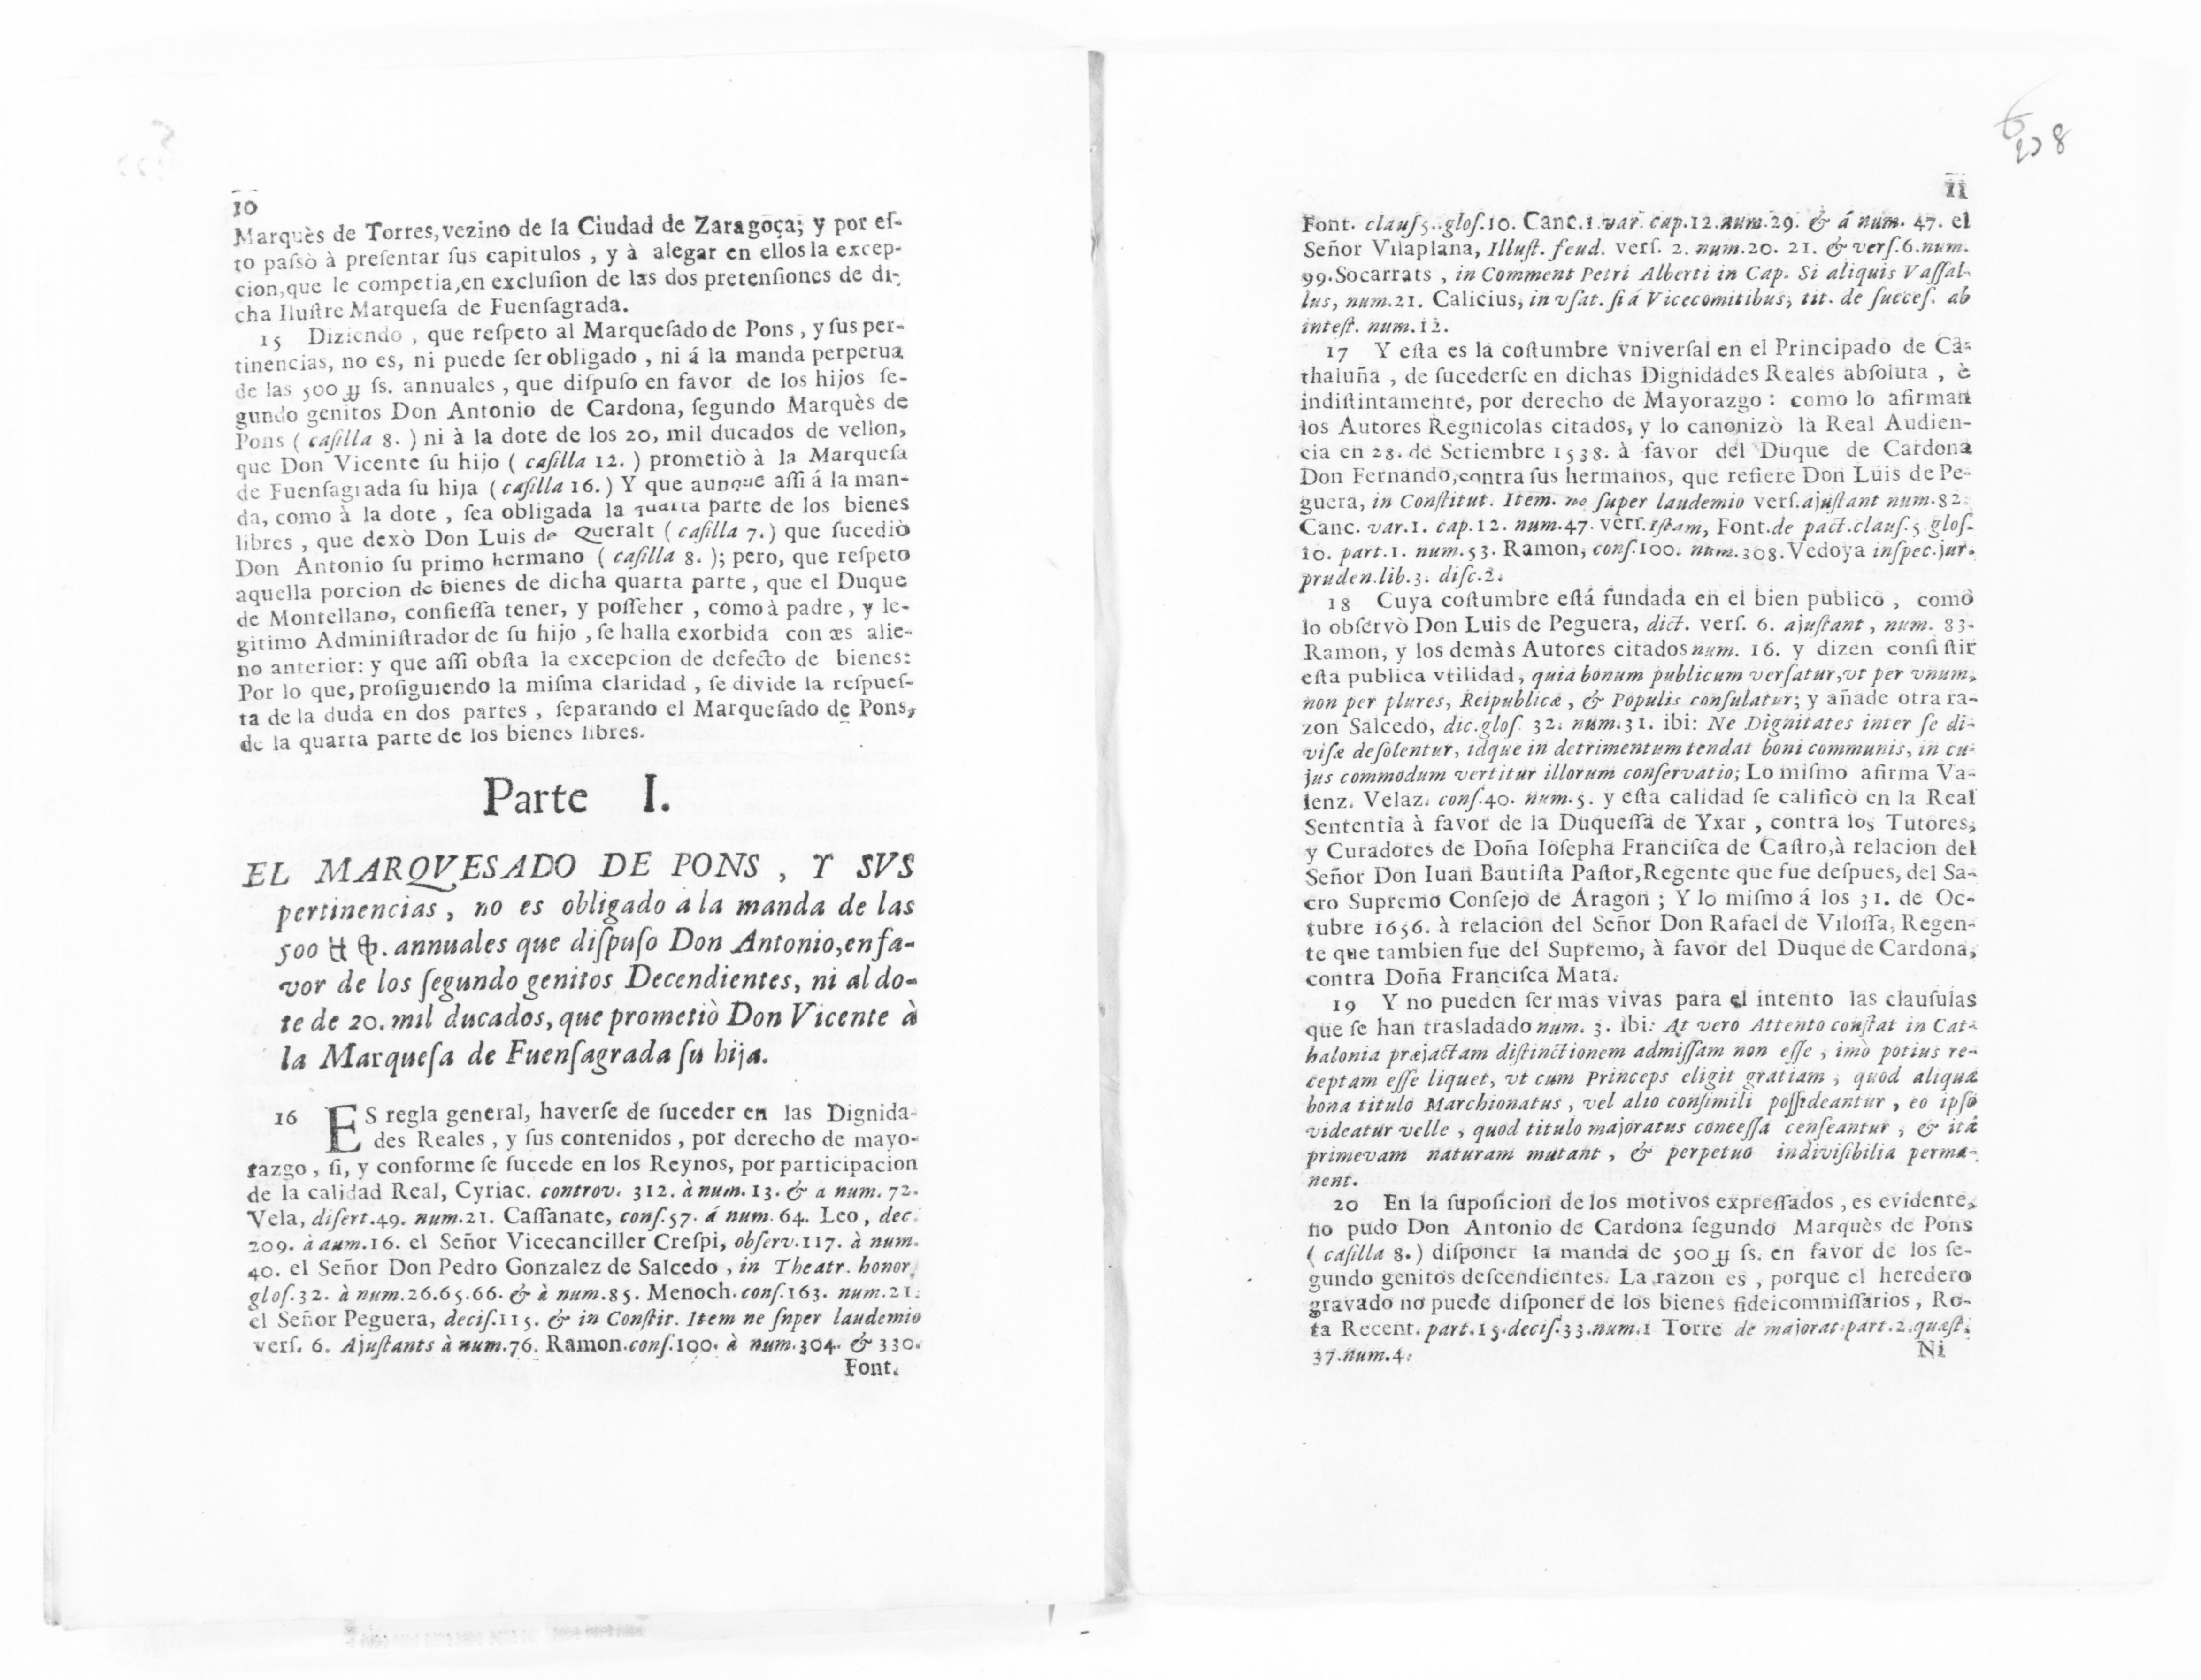 10
Marquès de Torres, vezino de la Ciudad de Zaragoça; y por eſ-
to paſsò à preſentar ſus capitulos , y à alegar en ellos la excep-
cion, que le competia, en excluſion de las dos pretenſiones de di-
cha Iluſtre Marqueſa de Fuenſagrada.
15 Diziendo , que reſpeto al Marqueſado de Pons , y ſus per-
tinencias, no es, ni puede ſer obligado , ni á la manda perpetua
de las 500 ſs. annuales , que diſpuſo en favor de los hijos ſe-
gundo genitos Don Antonio de Cardona, ſegundo Marquès de
Pons ( caſilla 8. ) ni à la dote de los 20, mil ducados de vellon,
que Don Vicente ſu hijo ( caſilla 12. ) prometiò à la Marqueſa
de Fuenſagrada ſu hija ( caſilla 16. ) Y que aunque aſſi á la man-
da, como à la dote , ſea obligada la quarta parte de los bienes
libres , que dexò Don Luis de Queralt ( caſilla 7. ) que ſucediò
Don Antonio ſu primo hermano ( caſilla 8. ); pero, que reſpeto
aquella porcion de bienes de dicha quarta parte , que el Duque
de Montellano, confieſſa tener, y poſſeher , como à padre , y le-
gitimo Adminiſtrador de ſu hijo , ſe halla exorbida con æs alie-
no anterior: y que aſſi obſta la excepcion de defecto de bienes:
Por lo que, proſiguiendo la miſma claridad , ſe divide la reſpueſ-
ta de la duda en dos partes , ſeparando el Marqueſado de Pons,
de la quarta parte de los bienes libres.
Parte I.
EL MARQVESADO DE PONS , Y SVS
pertinencias , no es obligado a la manda de las
500 annuales que diſpuſo Don Antonio, en fa-
vor de los ſegundo genitos Decendientes, ni al do-
te de 20. mil ducados, que prometiò Don Vicente à
la Marqueſa de Fuenſagrada ſu hija.
16 ES regla general, haverſe de ſuceder en las Dignida-
des Reales , y ſus contenidos , por derecho de mayo-
razgo , ſi, y conforme ſe ſucede en los Reynos, por participacion
de la calidad Real, Cyriac. controv. 312. à num. 13. & a num. 72.
Vela, diſert. 49. num. 21. Caſſanate, conſ. 57. á num. 64. Leo , dec.
209. à aum. 16. el Señor Vicecanciller Creſpi, obſerv. 117. à num.
40. el Señor Don Pedro Gonzalez de Salcedo , in Theatr. honor.
gloſ. 32. à num. 26. 65. 66. & à num. 85. Menoch. conſ. 163. num. 21.
el Señor Peguera, deciſ. 115. & in Conſtit. Item ne ſnper laudemio
verſ. 6. Ajuſtants à num. 76. Ramon. conſ. 100. à num. 304. & 330.
Font.
11
Font. clauſ 5. gloſ. 10. Canc. 1. var. cap. 12. num. 29. & á num. 47. el
Señor Vilaplana, Illuſt. feud. verſ. 2. num. 20. 21. & verſ. 6. num.
99. Socarrats , in Comment Petri Alberti in Cap. Si aliquis Vaſſal-
lus, num. 21. Calicius, in vſat. ſi á Vicecomitibus, tit. de ſucceſ. ab
inteſt. num. 12.
17 Y eſta es la coſtumbre vniverſal en el Principado de Ca-
thaluña , de ſucederſe en dichas Dignidades Reales abſoluta , è
indiſtintamente, por derecho de Mayorazgo : como lo afirman
los Autores Regnicolas citados, y lo canonizò la Real Audien-
cia en 28. de Setiembre 1538. à favor del Duque de Cardona
Don Fernando, contra ſus hermanos, que refiere Don Luis de Pe-
guera, in Conſtitut. Item. ne ſuper laudemio verſ. ajuſtant num. 82.
Canc. var. 1. cap. 12. num. 47. verſ. iſtam, Font. de pact. clauſ. 5 gloſ.
10. part. 1. num. 53. Ramon, conſ. 100. num. 308. Vedoya inſpec. jur.
pruden. lib. 3. diſc. 2.
18 Cuya coſtumbre eſtá fundada en el bien publico , como
lo obſervò Don Luis de Peguera, dict. verſ. 6. ajuſtant , num. 83.
Ramon, y los demàs Autores citados num. 16. y dizen conſiſtir
eſta publica vtilidad, quia bonum publicum verſatur, vt per vnum,
non per plures, Reipublicæ , & Populis conſulatur; y añade otra ra-
zon Salcedo, dic. gloſ 32. num. 31. ibi: Ne Dignitates inter ſe di-
viſæ deſolentur, idque in detrimentum tendat boni communis, in cu-
jus commodum vertitur illorum conſervatio; Lo miſmo afirma Va-
lenz. Velaz. conſ. 40. num. 5. y eſta calidad ſe calificò en la Real
Sententia à favor de la Duqueſſa de Yxar , contra los Tutores,
y Curadores de Doña Ioſepha Franciſca de Caſtro, à relacion del
Señor Don Iuan Bautiſta Paſtor, Regente que fue deſpues, del Sa-
cro Supremo Conſejo de Aragon ; Y lo miſmo á los 31. de Oc-
tubre 1656. à relacion del Señor Don Rafael de Viloſſa, Regen-
te que tambien fue del Supremo, à favor del Duque de Cardona,
contra Doña Franciſca Mata.
19 Y no pueden ſer mas vivas para el intento las clauſulas
que ſe han trasladado num. 3. ibi: At vero Attento conſtat in Cat-
halonia præjactam diſtinctionem admiſſam non eſſe , imò potius re-
ceptam eſſe liquet, vt cum Princeps eligit gratiam , quod aliqua
bona titulo Marchionatus , vel alio conſimili poſſideantur , eo ipſo
videatur velle , quod titulo majoratus conceſſa cenſeantur , & ità
primevam naturam mutant , & perpetuo indiviſibilia perma-
nent.
20 En la ſupoſicion de los motivos expreſſados , es evidente,
no pudo Don Antonio de Cardona ſegundo Marquès de Pons
( caſilla 8. ) diſponer la manda de 500 ſs. en favor de los ſe-
gundo genitos deſcendientes. La razon es , porque el heredero
gravado no puede diſponer de los bienes fideicommiſſarios , Ro-
ta Recent. part. 15. deciſ. 33. num. 1 Torre de majorat. part. 2. quæſt.
37. num. 4.
Ni